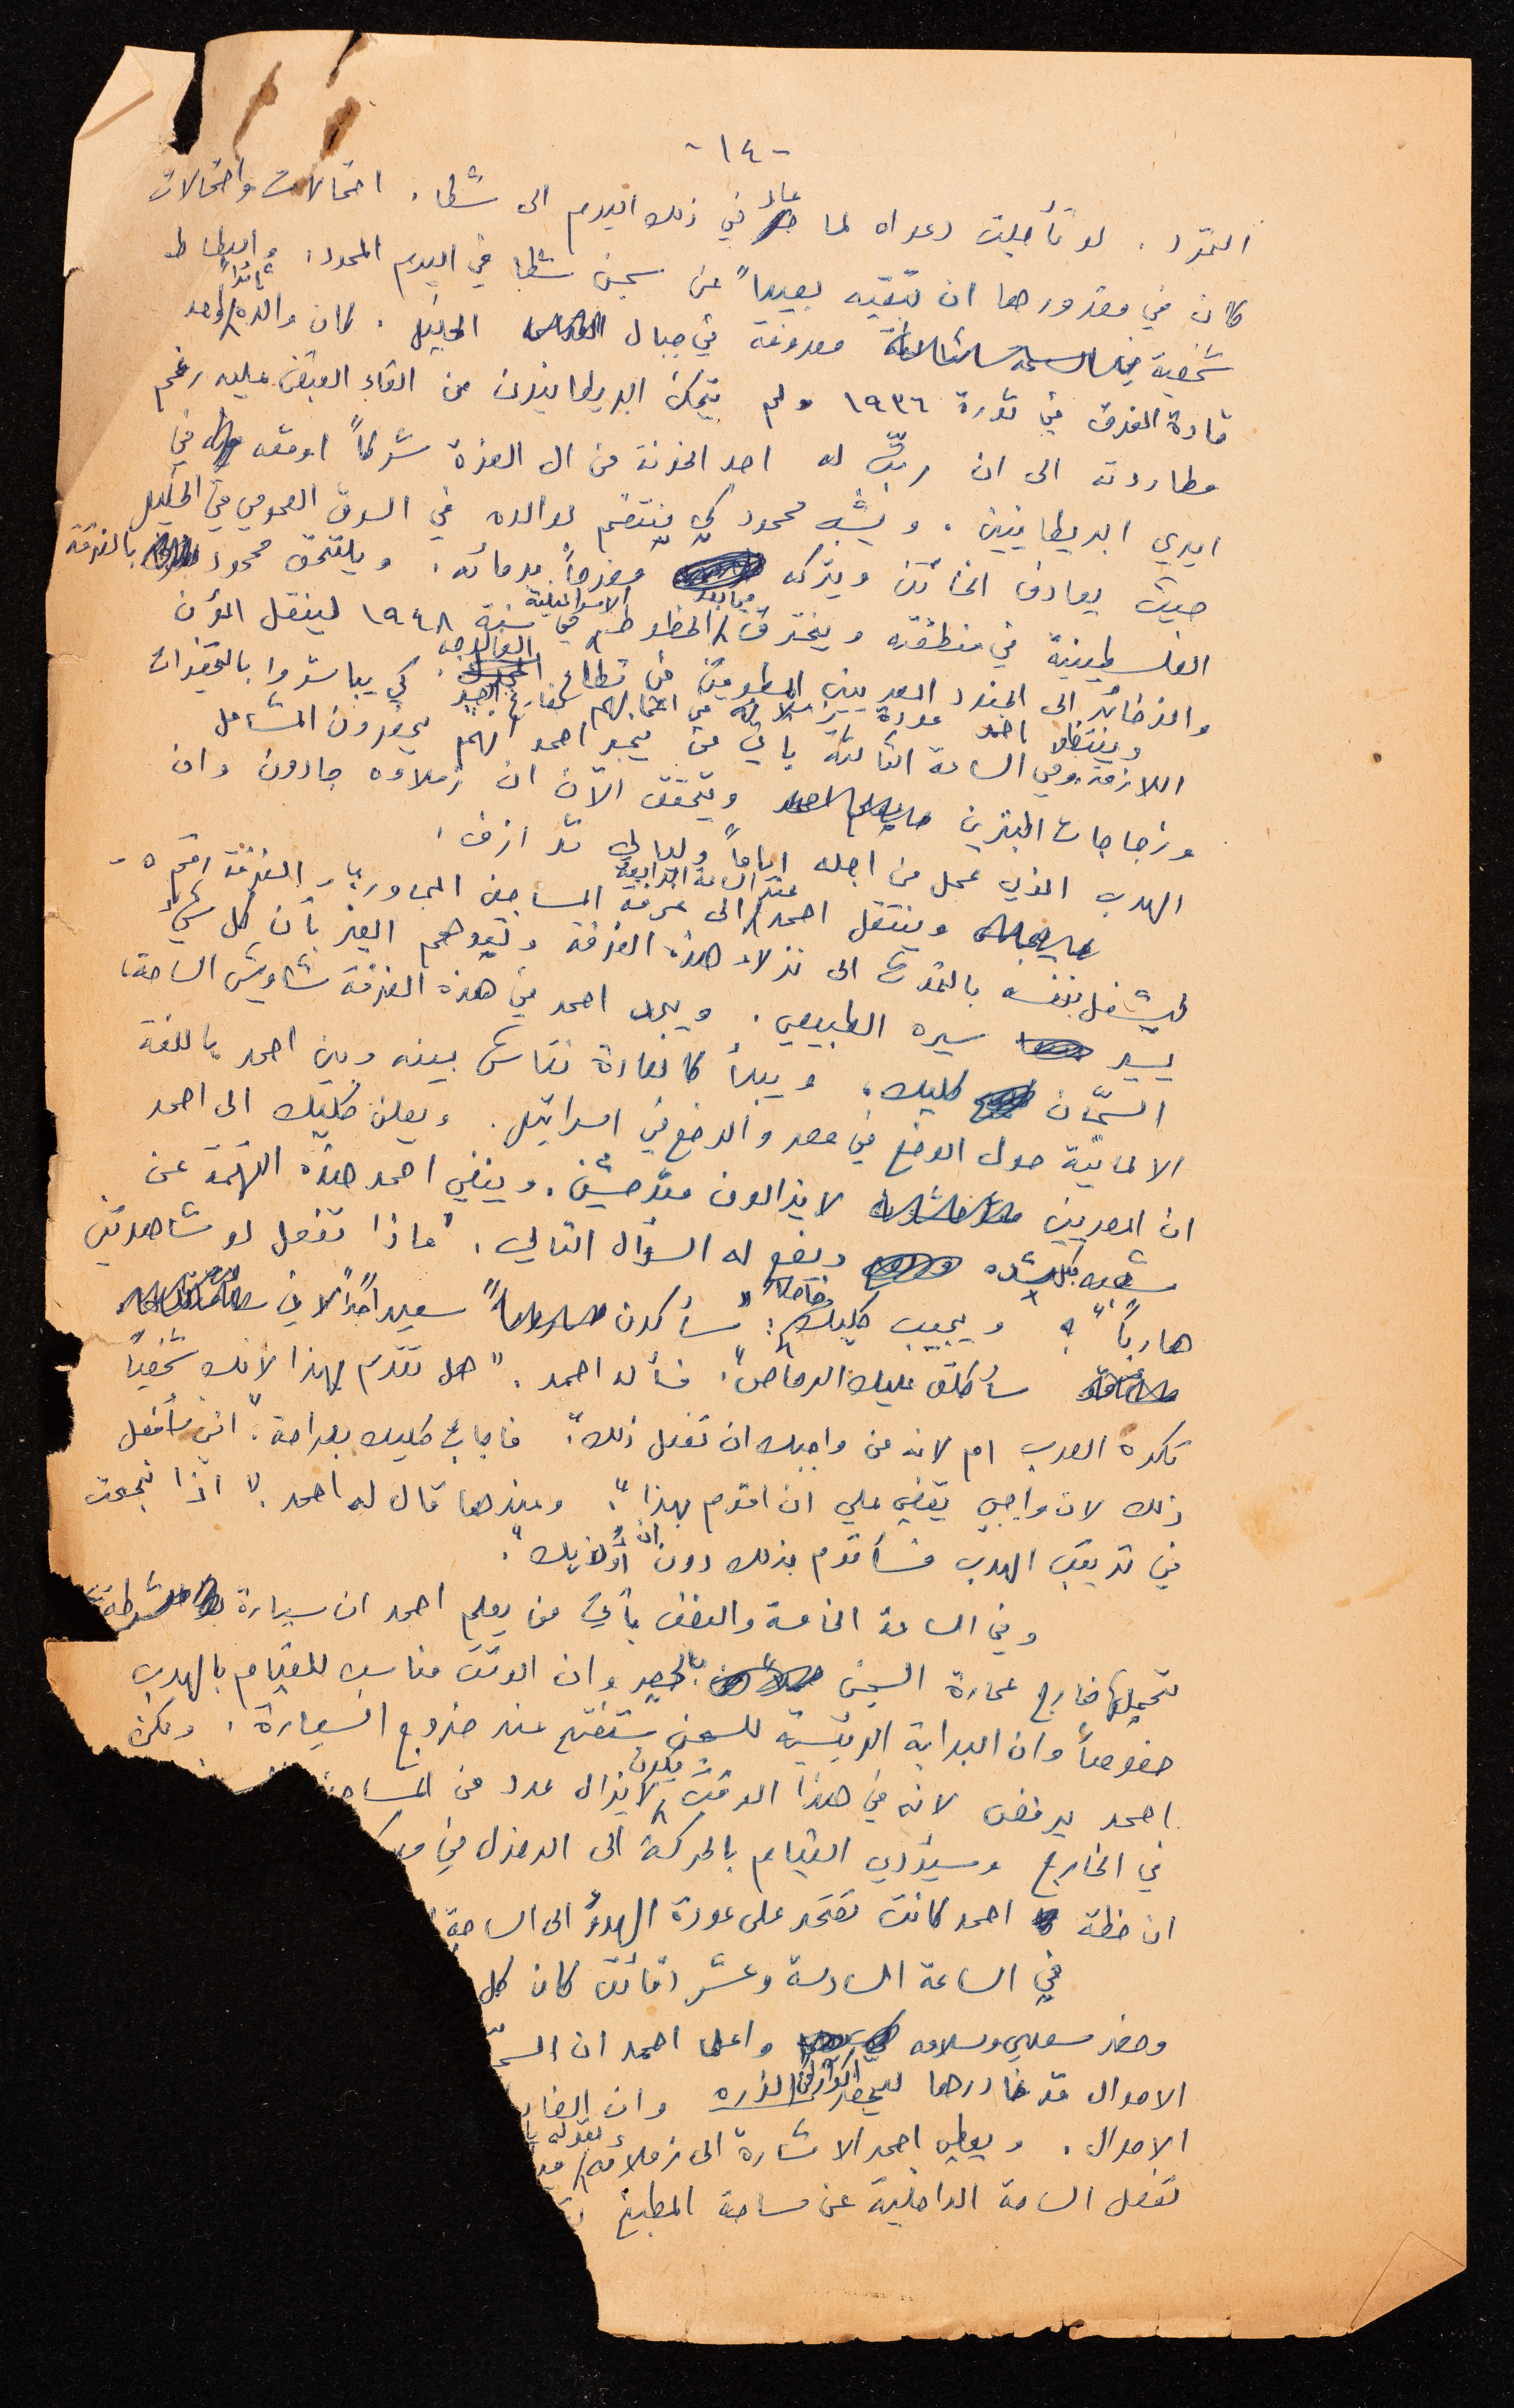 -١٤-
التمرد . لو تأجلت دعواه لما عاد في ذلك اليوم الى شطا . احتمالات واحتمالات
كان في مقدورها ان تبقيه بعيداً عن سجن شطا في اليوم المحدد .
شخصية معروفة في جبال الخليل . كان والده قائداً واحد
قادة الفرق في ثورة ١٩٣٦ ولم يتمكن البريطانيون من القاء القبض عليه رغم
مطاردته الى ان رتّب له احد الخونة من ال العزة شركاً اوقعه في
ايدي البريطانيين . ويشب محمود كي ينتقم لوالده في السوق العمومي في الخليل
حيث يصادف الخائن ويتركه مضرجاً بدمائه . ويلتحق محمود بالفرقة
الفلسطينية في منطقته ويخترق فيما بعد الخطوط الاسرائيلية في سنة ١٩٤٨ لينقل المؤن
والذخائر الى الجنود المصريين المطوقين في قطاع الفالوجه .
وينتظر احمد عودة زملائه من اعمالهم كي يباشروا بالتحضيرات
اللازمة وفي الساعة الثالثة يأتي من يخبر احمد انهم يحضرون المشاعل
وزجاجات البنزين ويتحقق الآن ان زملاءه جادون وان
الهرب الذي عمل من اجله اياماً وليالي قد ازف .
وينتقل احمد عند الساعة الرابعة الى غرفة المساجين المجاورة الغرفة رقم ٥ -
ليشغل نفسه بالتحدث الى نزلاء هذه الغرفة بأن كل شيء
يسير سيره الطبيعي . ويجد احمد في هذه الغرفة شاويش الساحة ،
السجّان كليك ، ويبدأ كالعادة نقاش بينه وبين احمد باللغة
الالمانية حول الوضع في مصر والوضع في اسرائيل . ويعلن كليك الى احمد
ان المصريين لا يزالون متوحشين . وينفي احمد هذه التهمة عن
شعبه بكل شده ويضع له السؤال التالي . "ماذا تفعل لو شاهدتني
هارباً" ؟ ويجيب كليك ضاحكا : "سأكون سعيداً جداً لاني
سأطلق عليك الرصاص" . فسأله احمد . "هل تقوم بهذا لانك شخصياً
تكره العرب ام لانه من واجبك ان تفعل ذلك" . فاجاب كليك بصراحة . "انني سأفعل
ذلك لان واجبي يقضي علي ان اقوم بهذا" . وعندها قال له احمد . "اذا نجحت
في تدبير الهرب فسأقوم بذلك دون ان أوذيك" .
وفي الساعة الخامسة والنصف يأتي من يعلم احمد ان سيارة
خارج عمارة السجن وان الوقت مناسب للقيام بالهرب
خصوصاً وان البوابة الرئيسية للسجن ستفتح عند خروج السيارة . ولكن
احمد يرفض لانه في هذا الوقت يكون لا يزال عدد من المساجين
في الخارج وسيؤدي القيام بالحركة الى
ان خطة احمد كانت تعتمد على عودة الهدؤ الى الساحة
في الساعة السادسة وعشر دقائق كان كل
وحضر سعدي وسلامه واعلما احمد ان
الاموال قد غادرها ليحضر اكواز الذره وان
الاموال . ويعطي احمد الاشارة الى زملائه
تفصل الساحة الداخلية عن ساحة المطبخ